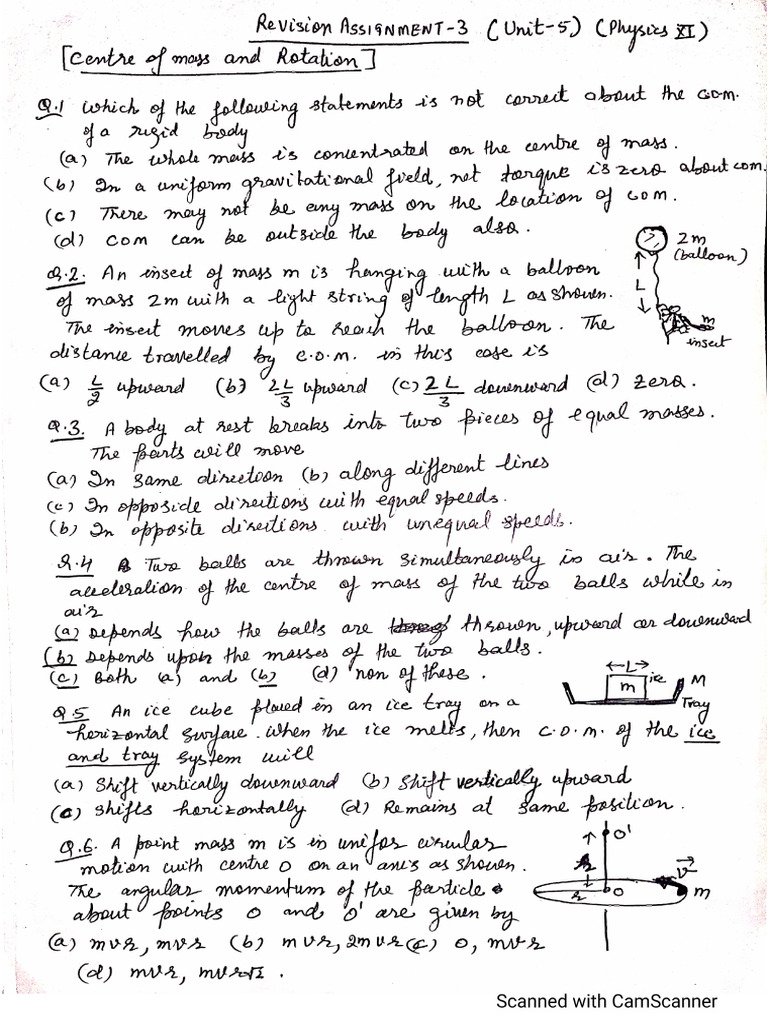 Revision ASSIGNMENT-3 (Unit-5) (Physics XI)
[Centre of mass and Rotation]
Q.1 which of the following statements is not correct about the com.
of a rigid body
(a) The whole mass is concentrated on the centre of mass.
(b) In a uniform gravitational field, net torque is zero about com.
(c) There may not be any mass on the location of com.
(d) com can be outside the body also.
2m
(balloon)
L
m
insect
Q.2. An insect of mass m is hanging with a balloon
of mass 2m with a light string of length L as shown.
The insect moves up to reach the balloon. The
distance travelled by c.o.m. in this case is
(a) L/2 upward (b) 2L/3 upward (c) 2L/3 downward (d) zero.
Q.3. A body at rest breaks into two pieces of equal masses.
The parts will move
(a) In same direction (b) along different lines
(c) In opposide directions with equal speeds.
(b) In opposite directions with unequal speeds.
Q.4 Two balls are thrown simultaneously in air. The
acceleration of the centre of mass of the two balls while in
air
(a) Depends how the balls are thrown, upward or downward
(b) Depends upon the masses of the two balls.
(c) Both (a) and (b) (d) non of these.
L
m
ice
M
Tray
Q.5 An ice cube placed in an ice tray on a
horizontal surface. when the ice melts, then c.o.m. of the ice
and tray system will
(a) Shift vertically downward (b) Shift vertically upward
(c) shifts horizontally (d) Remains at same position.
Q.6. A point mass m is in unifor circular
motion with centre O on an axis as shown.
The angular momentum of the particle
about points O and O' are given by
O'
r
v
r
O
m
(a) mvr, mvr (b) mvr, 2mvr (c) 0, mvr
(d) mvr, mvr√2.
Scanned with CamScanner